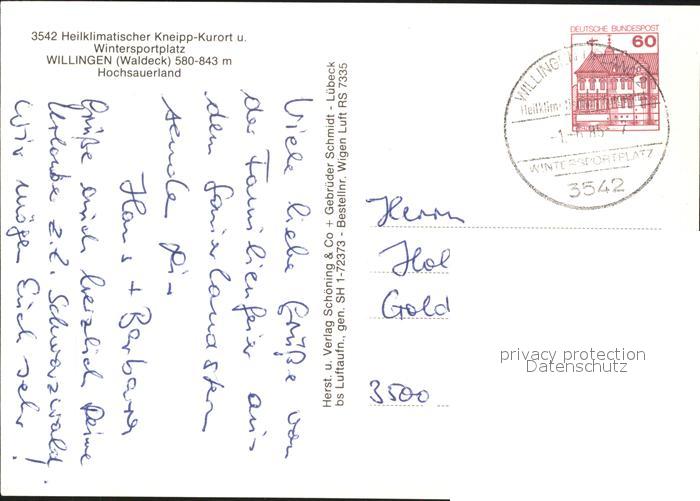 3542 Heilklimatischer Kneipp-Kurort u.
Wintersportplatz
WILLINGEN (Waldeck) 580-843 m
Hochsauerland
Viele liebe Grüße von
der Familienfeier aus
dem Sauerland
sendet Dir
Hans + Barbara
Grüße auch herzlich Deine
Urlauber z.Z. Schwarzwald!
Wir mögen Euch sehr!
Herst. u. Verlag Schöning & Co + Gebrüder Schmidt - Lübeck
bs Luftaufn., gen. SH 1-72373 - Bestellnr. Wigen Luft RS 7335
DEUTSCHE BUNDESPOST
60
WILLINGEN
Heilklim
85
WINTERSPORTPLATZ
3542
Herrn
Hol
Gold
3500
privacy protection
Datenschutz